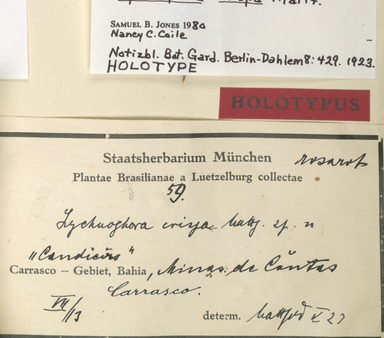 SAMUEL B. JONES 1980
Nancy C. Coile
Notizbl. Bot. Gard. Berlin-Dahlem 8: 429. 1923.
HOLOTYPE
HOLOTYPUS
Staatsherbarium München
rosarot
Plantae Brasilianae a Luetzelburg collectae
59.
Lychnophora crispa Mattf. sp. n
"Candieiro"
Carrasco – Gebiet, Bahia, Minas de Cõntas
Carrasco.
VII/13
determ. Mattfeld X 23